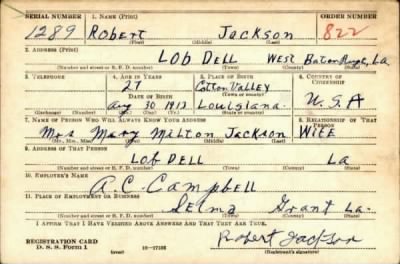 SERIAL NUMBER 1. NAME (Print) ORDER NUMBER
1289 Robert Jackson 822
(First) (Middle) (Last)
2. ADDRESS (Print)
LOB DELL West Baton Rouge, La.
(Number and street or R. F. D. number) (Town) (County) (State)
3. TELEPHONE 4. AGE IN YEARS 5. PLACE OF BIRTH 6. COUNTRY OF CITIZENSHIP
27 Cotton Valley
DATE OF BIRTH (Town or county)
Aug 30 1913 Louisiana. U.S.A
(Exchange) (Number) (Mo.) (Day) (Yr.) (State or country)
7. NAME OF PERSON WHO WILL ALWAYS KNOW YOUR ADDRESS 8. RELATIONSHIP OF THAT PERSON
Mrs Mary Milton Jackson Wife
(Mr., Mrs., Miss) (First) (Middle) (Last)
9. ADDRESS OF THAT PERSON
LOB DELL La
(Number and street or R. F. D. number) (Town) (County) (State)
10. EMPLOYER'S NAME
A.C. Campbell
11. PLACE OF EMPLOYMENT OR BUSINESS
Selma Grant La.
(Number and street or R. F. D. number) (Town) (County) (State)
I AFFIRM THAT I HAVE VERIFIED ABOVE ANSWERS AND THAT THEY ARE TRUE.
Robert Jackson
REGISTRATION CARD
D. S. S. Form 1 (over) 16-17105 (Registrant's signature)